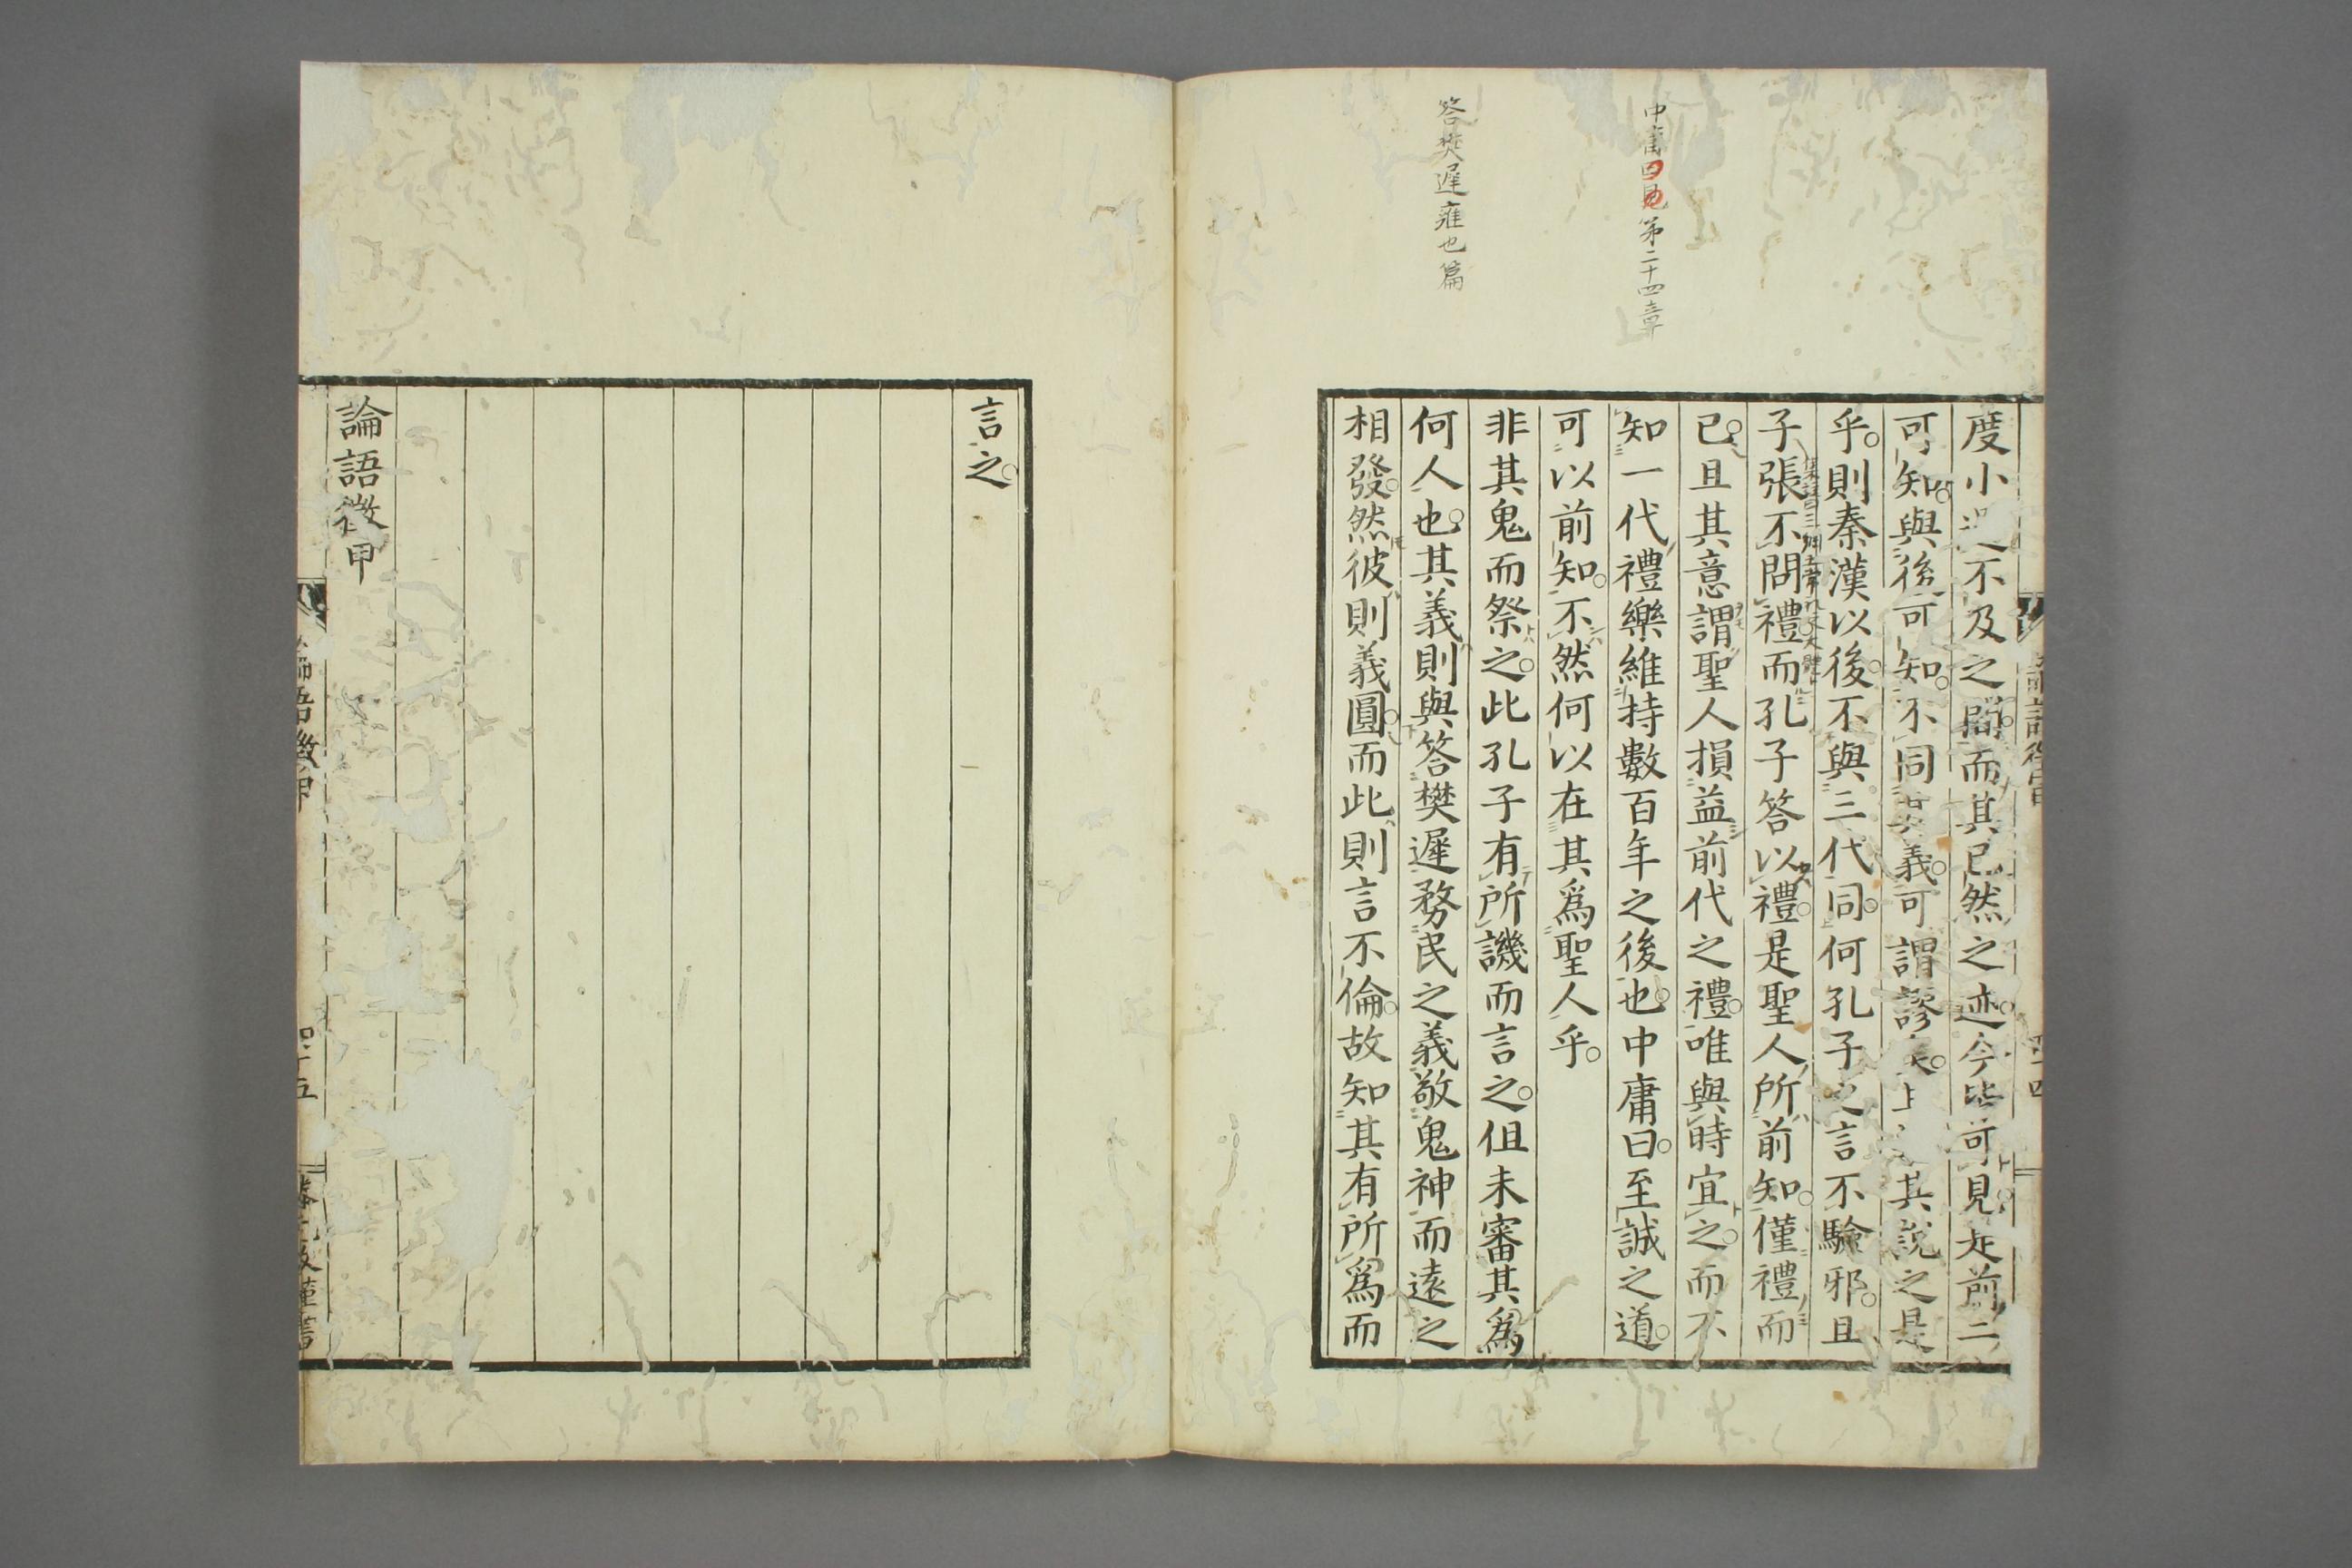 中庸四見第二十四章
答樊遲雍也篇
度小過不及之間而其已然之迹今皆可見是前之
可知與後可知不同其義可謂謬矣其說之是
乎則秦漢以後不與三代同何孔子之言不驗邪且
子張不問禮而孔子答以禮是聖人所前知僅禮而
已且其意謂聖人損益前代之禮唯與時宜之而不
知一代禮樂維持數百年之後也中庸曰至誠之道
可以前知不然何以在其為聖人乎
非其鬼而祭之此孔子有所譏而言之但未審其爲
何人也其義則與答樊遲務民之義敬鬼神而遠之
相發然彼則義圓而此則言不倫故知其有所爲而
言之
論語徵甲
論語徵甲
四十五